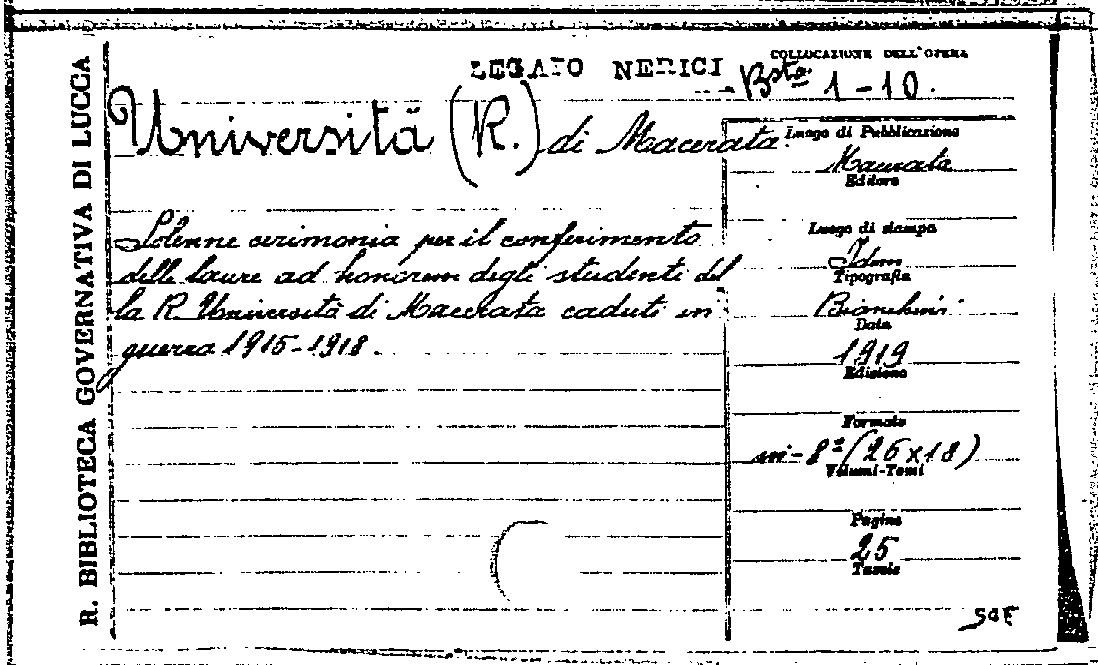 R. BIBLIOTECA GOVERNATIVA DI LUCCA
LEGATO NERICI
COLLOCAZIONE DELL'OPERA
Bsta 1-10.
Università (R.) di Macerata.
Solenne cerimonia per il conferimento
delle lauree ad honorem degli studenti del
la R Università di Macerata caduti in
guerra 1915-1918.
Luogo di Pubblicazione
Macerata
Editore
Luogo di stampa
Idem
Tipografia
Bianchini
Data
1919
Edizione
Formato
in-8º (26x18)
Volumi-Tomi
Pagine
25
Tavole